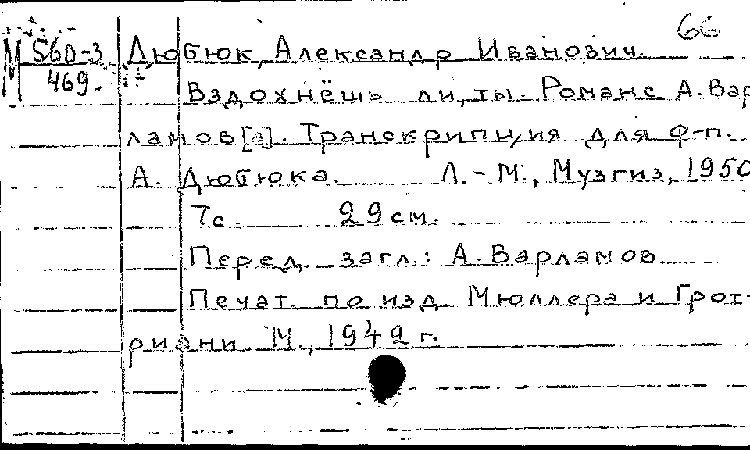 66
М S60-3 Дюбюк, Александр Иванович.
469.
Вздохнёшь ли ты. Романс А. Вар
ламов[а]. Транскрипция для ф-п.
А. Дюбюка. Л.-М., Музгиз, 1950
7с. 29см.
Перед загл.: А. Варламов
Печат. по изд. Мюллера и Грот-
риани М., 1942 г.